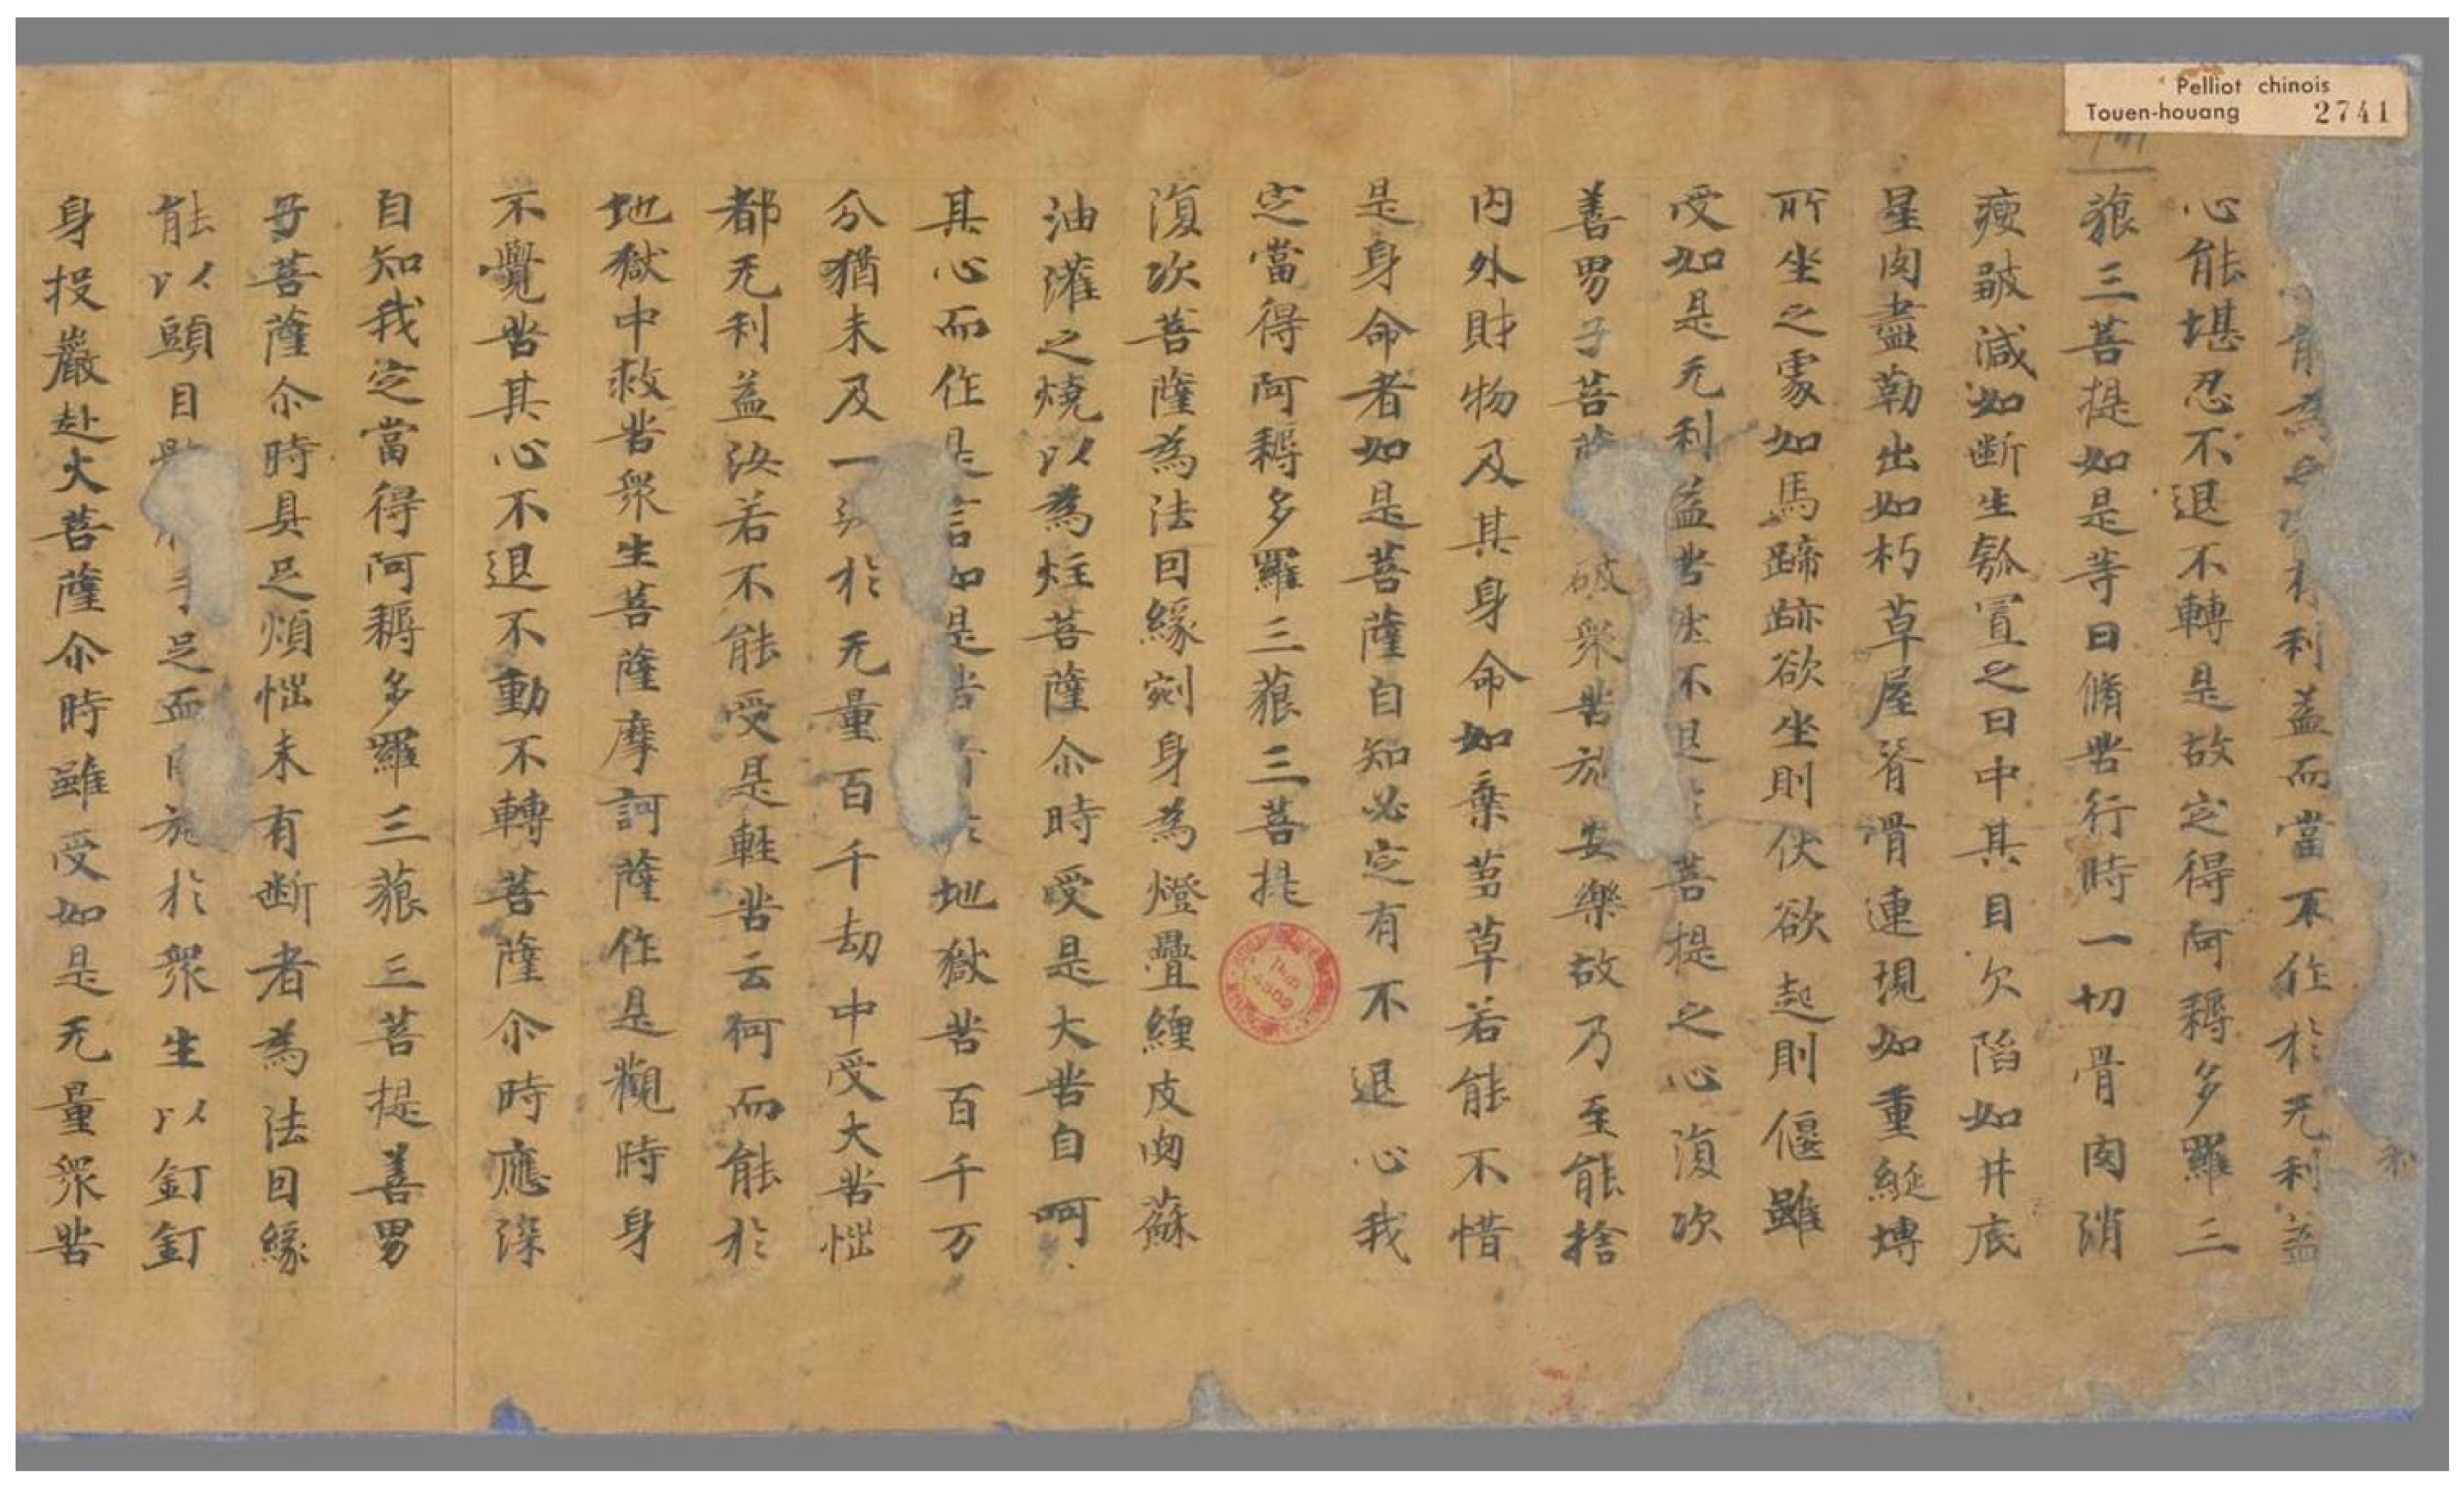 Pelliot chinois
Touen-houang 2741
利益而當不作於无利益
心能堪忍不退不轉是故定得阿耨多羅三
藐三菩提如是等日脩苦行時一切骨肉消
瘦皺減如斷生瓠置之日中其目欠陷如井底
星肉盡勒出如朽草屋脊骨連現如重綖塼
所坐之處如馬蹄跡欲坐則伏欲起則偃雖
受如是无利益苦然不退菩提之心復次
善男子菩薩破眾苦施安樂故乃至能捨
內外財物及其身命如棄芻草若能不惜
是身命者如是菩薩自知必定有不退心我
定當得阿耨多羅三藐三菩提
復次菩薩為法因緣剜身為燈疊纏皮肉蘇
油灌之燒以為炷菩薩尒時受是大苦自呵
其心而作是言如是苦地獄苦百千万
分猶未及一於无量百千劫中受大苦惱
都无利益汝若不能受是輕苦云何而能於
地獄中救苦眾生菩薩摩訶薩作是觀時身
不覺苦其心不退不動不轉菩薩尒時應深
自知我定當得阿耨多羅三藐三菩提善男
子菩薩尒時具足煩惱未有斷者為法因緣
能以頭目手足血施於眾生以釘釘
身投巖赴火菩薩尒時雖受如是无量眾苦